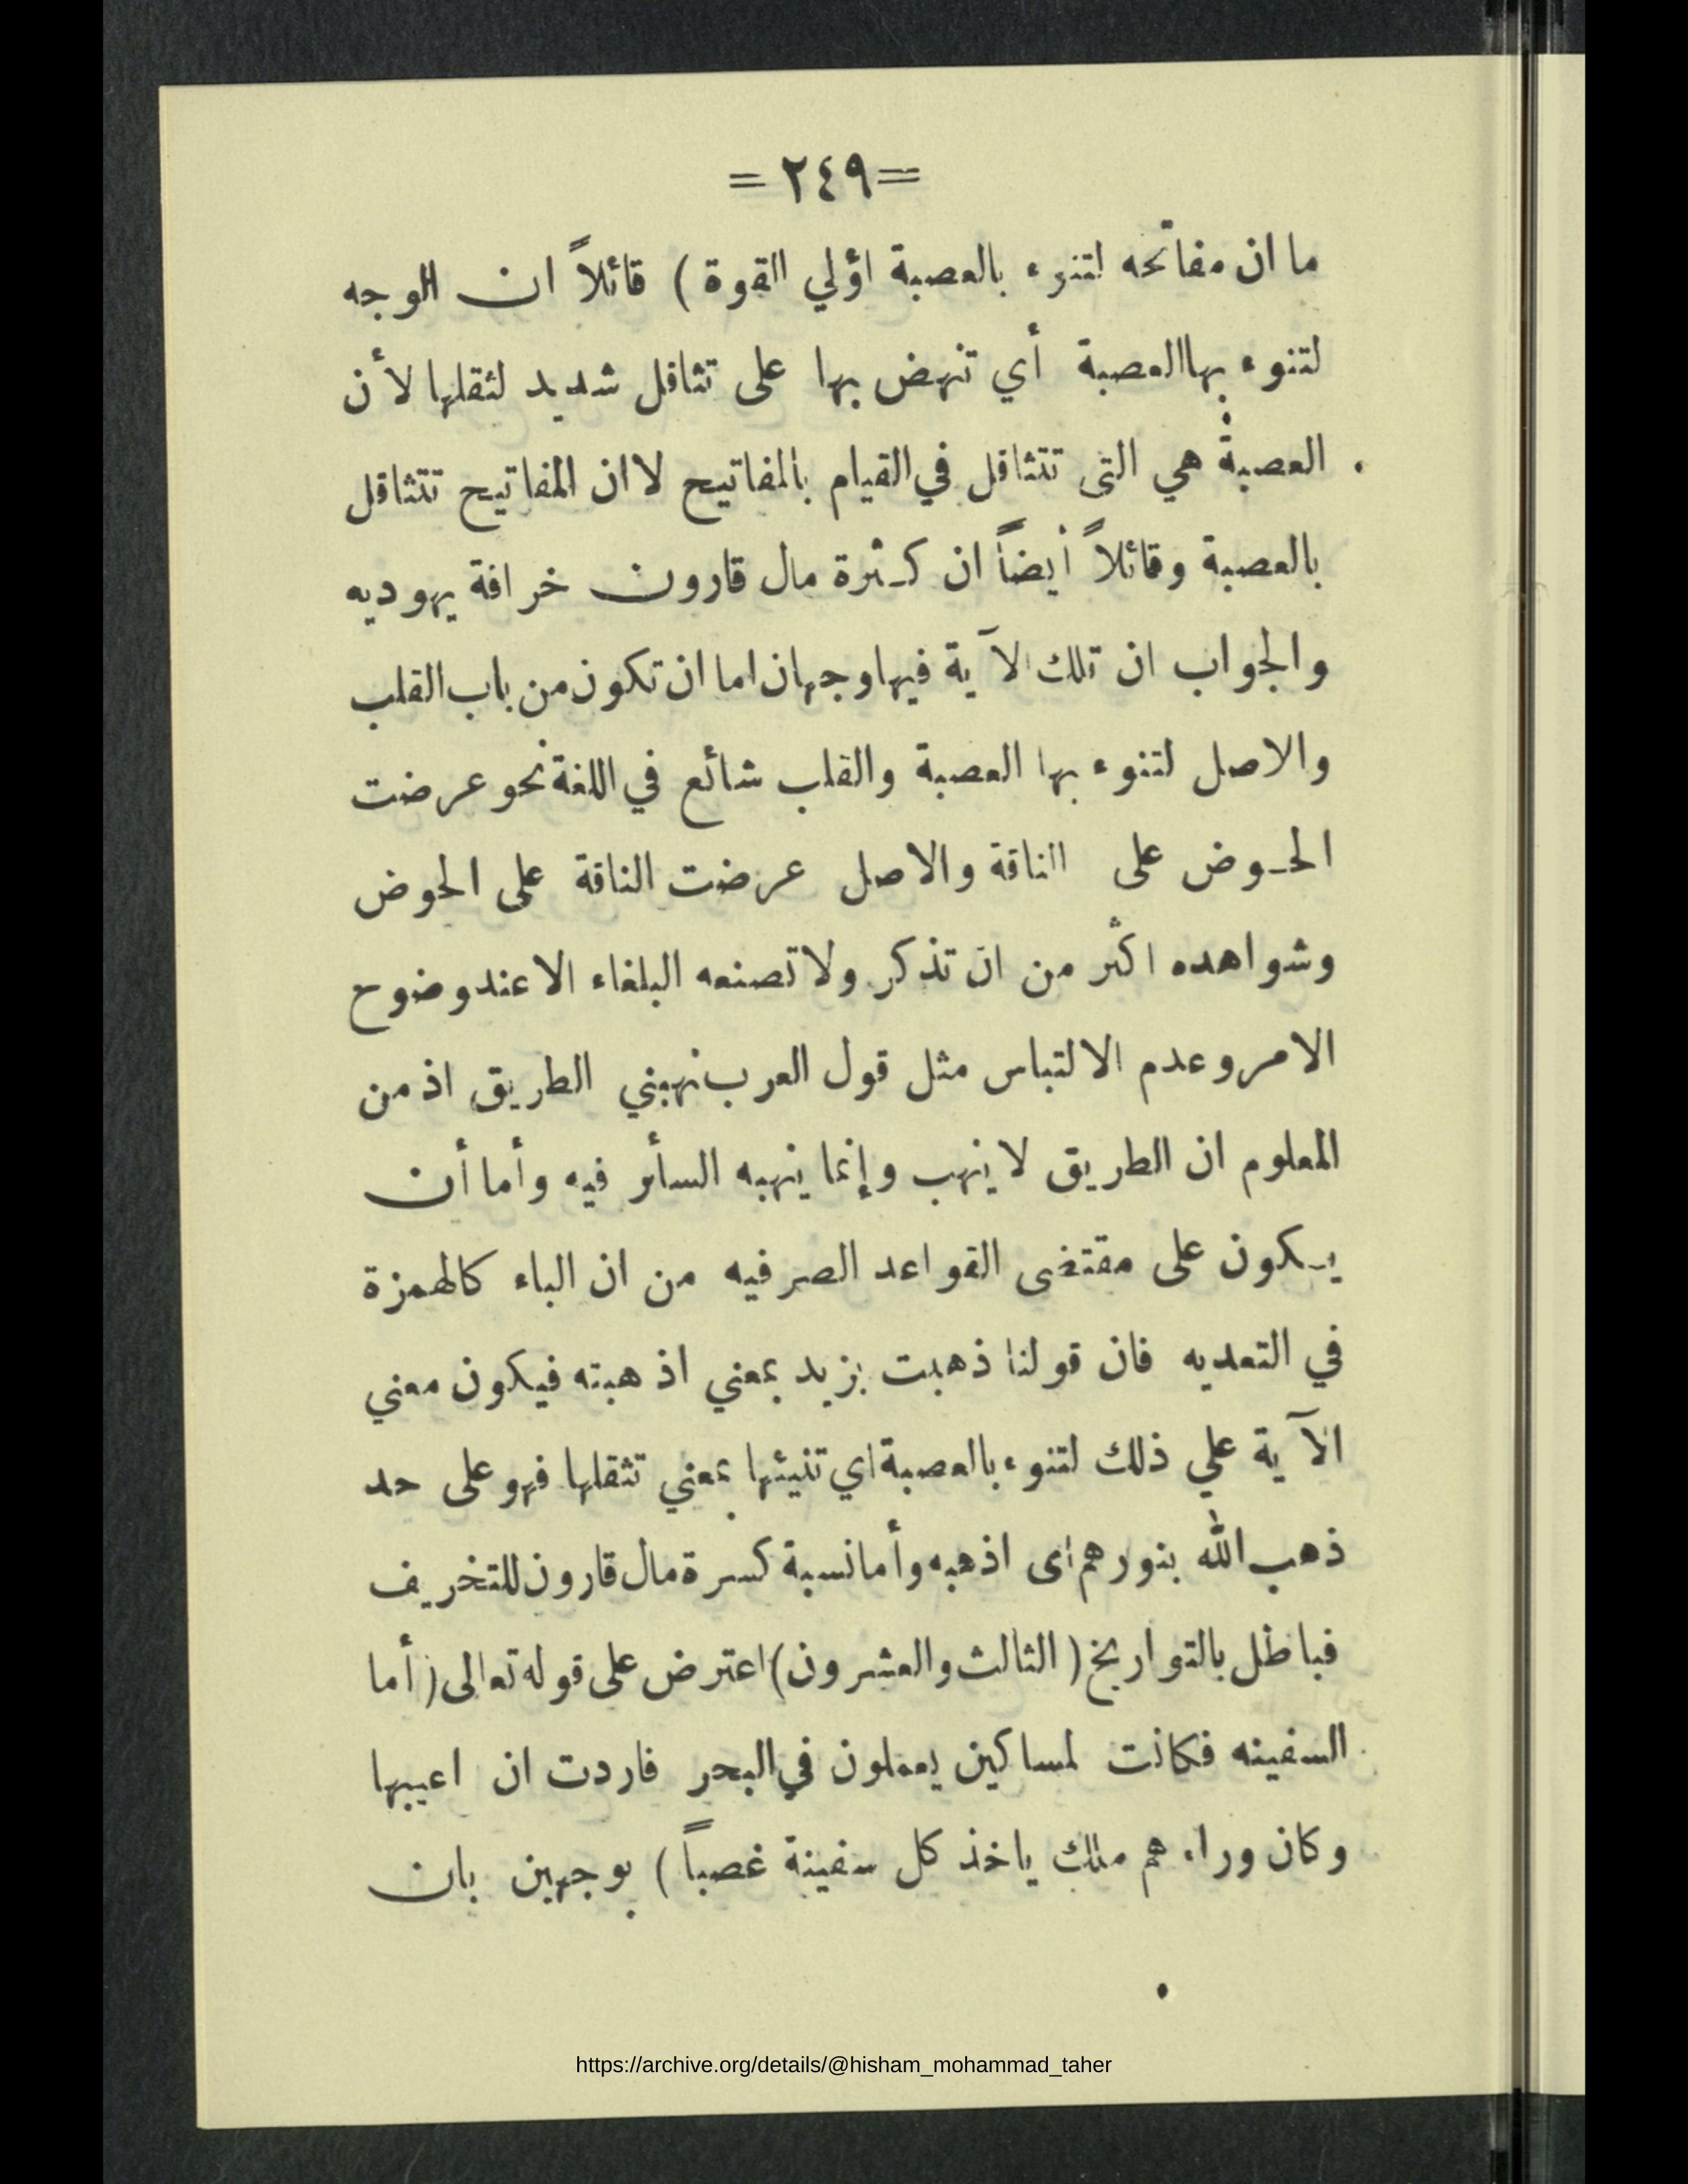 =٢٤٩=
ما ان مفاتحه لتنوء بالعصبة اؤلي القوة ) قائلاً ان الوجه
لتنوء بهاالعصبة أي تنهض بها على تثاقل شديد لثقلها لأن
العصبة هي التى تتثاقل في القيام بالمفاتيح لاان المفاتيح تتثاقل
بالعصبة وقائلاً أيضاً ان كـثرة مال قارون خرافة يهوديه
والجواب ان تلك الآية فيها وجهان اما ان تكون من باب القلب
والاصل لتنوء بها العصبة والقلب شائع في اللغة نحو عرضت
الحـوض على الناقة والاصل عرضت الناقة على الحوض
وشواهده اكثر من ان تذكر ولا تصنعه البلغاء الا عند وضوح
الامر وعدم الالتباس مثل قول العرب نهبني الطريق اذ من
المعلوم ان الطريق لا ينهب وإنما ينهبه السأر فيه وأما أن
يـكون على مقتضى القواعد الصرفيه من ان الباء كالهمزة
في التعديه فان قولنا ذهبت بزيد بمعني اذهبته فيكون معني
الآية علي ذلك لتنوء بالعصبة اي تنيئها بمعني تثقلها فهو على حد
ذهب الله بنورهم اى اذهبه وأما نسبة كسرة مال قارون للتخريف
فباطل بالتواريخ ( الثالث والعشرون) اعترض على قوله تعالى ( أما
السفينه فكانت لمساكين يعملون في البحر فاردت ان اعيبها
وكان وراءهم ملك ياخذ كل سفينة غصباً ) بوجهين بان
https://archive.org/details/@hisham_mohammad_taher